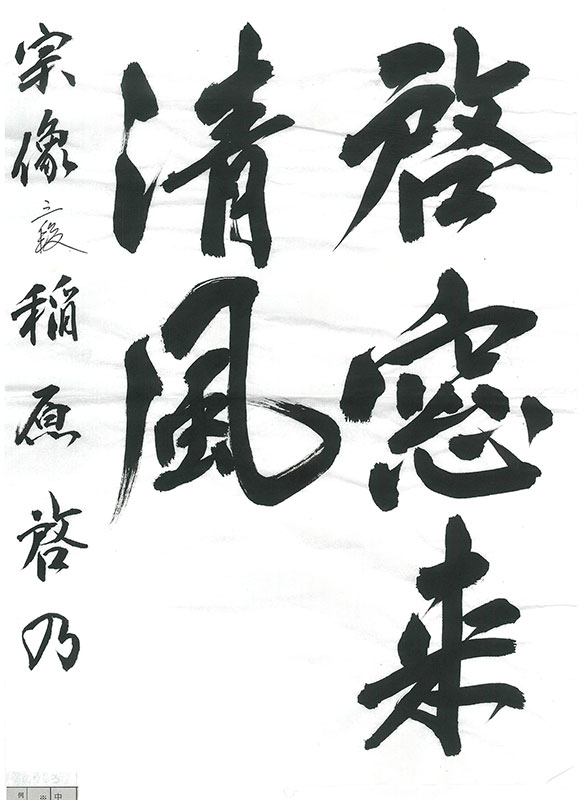 啓窓来
清風
宗像 三段 稲原啓乃